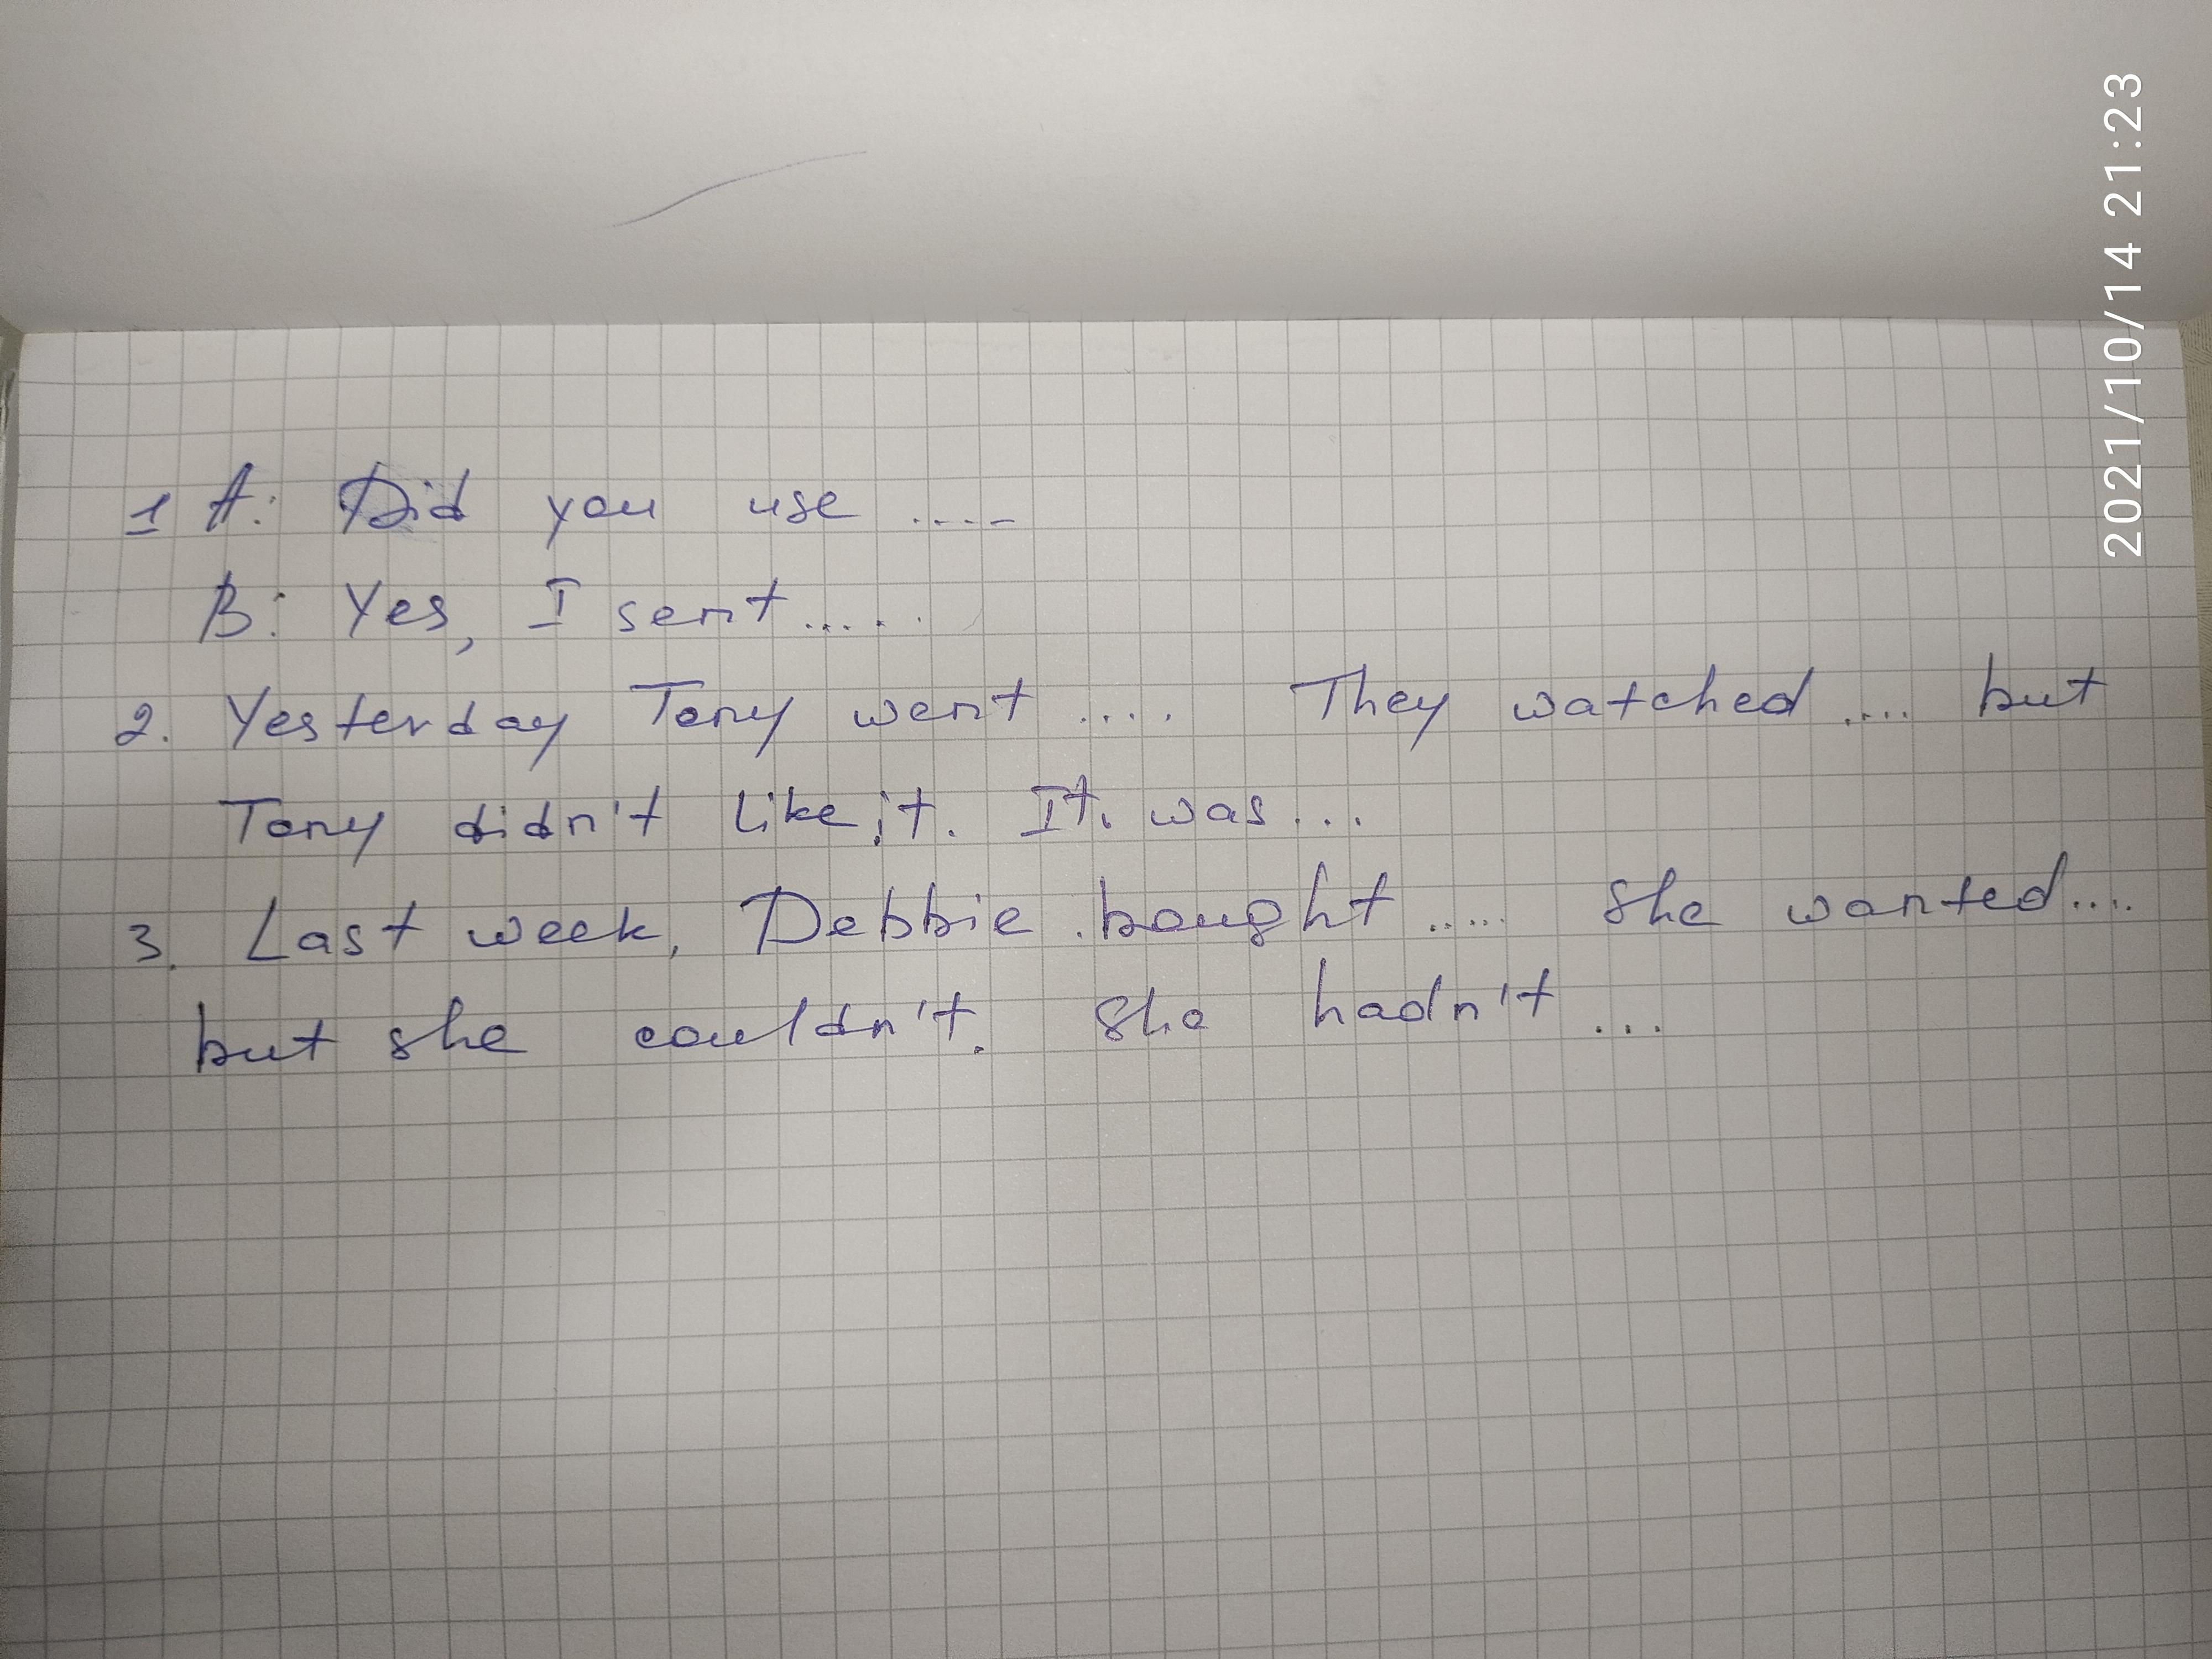 1 A: Did you use ....
B: Yes, I sent.....
2. Yesterday Tony went .... They watched .... but
Tony didn't like it. It was...
3. Last week, Debbie bought ..... She wanted....
but she couldn't. She hadn't ...
2021/10/14 21:23